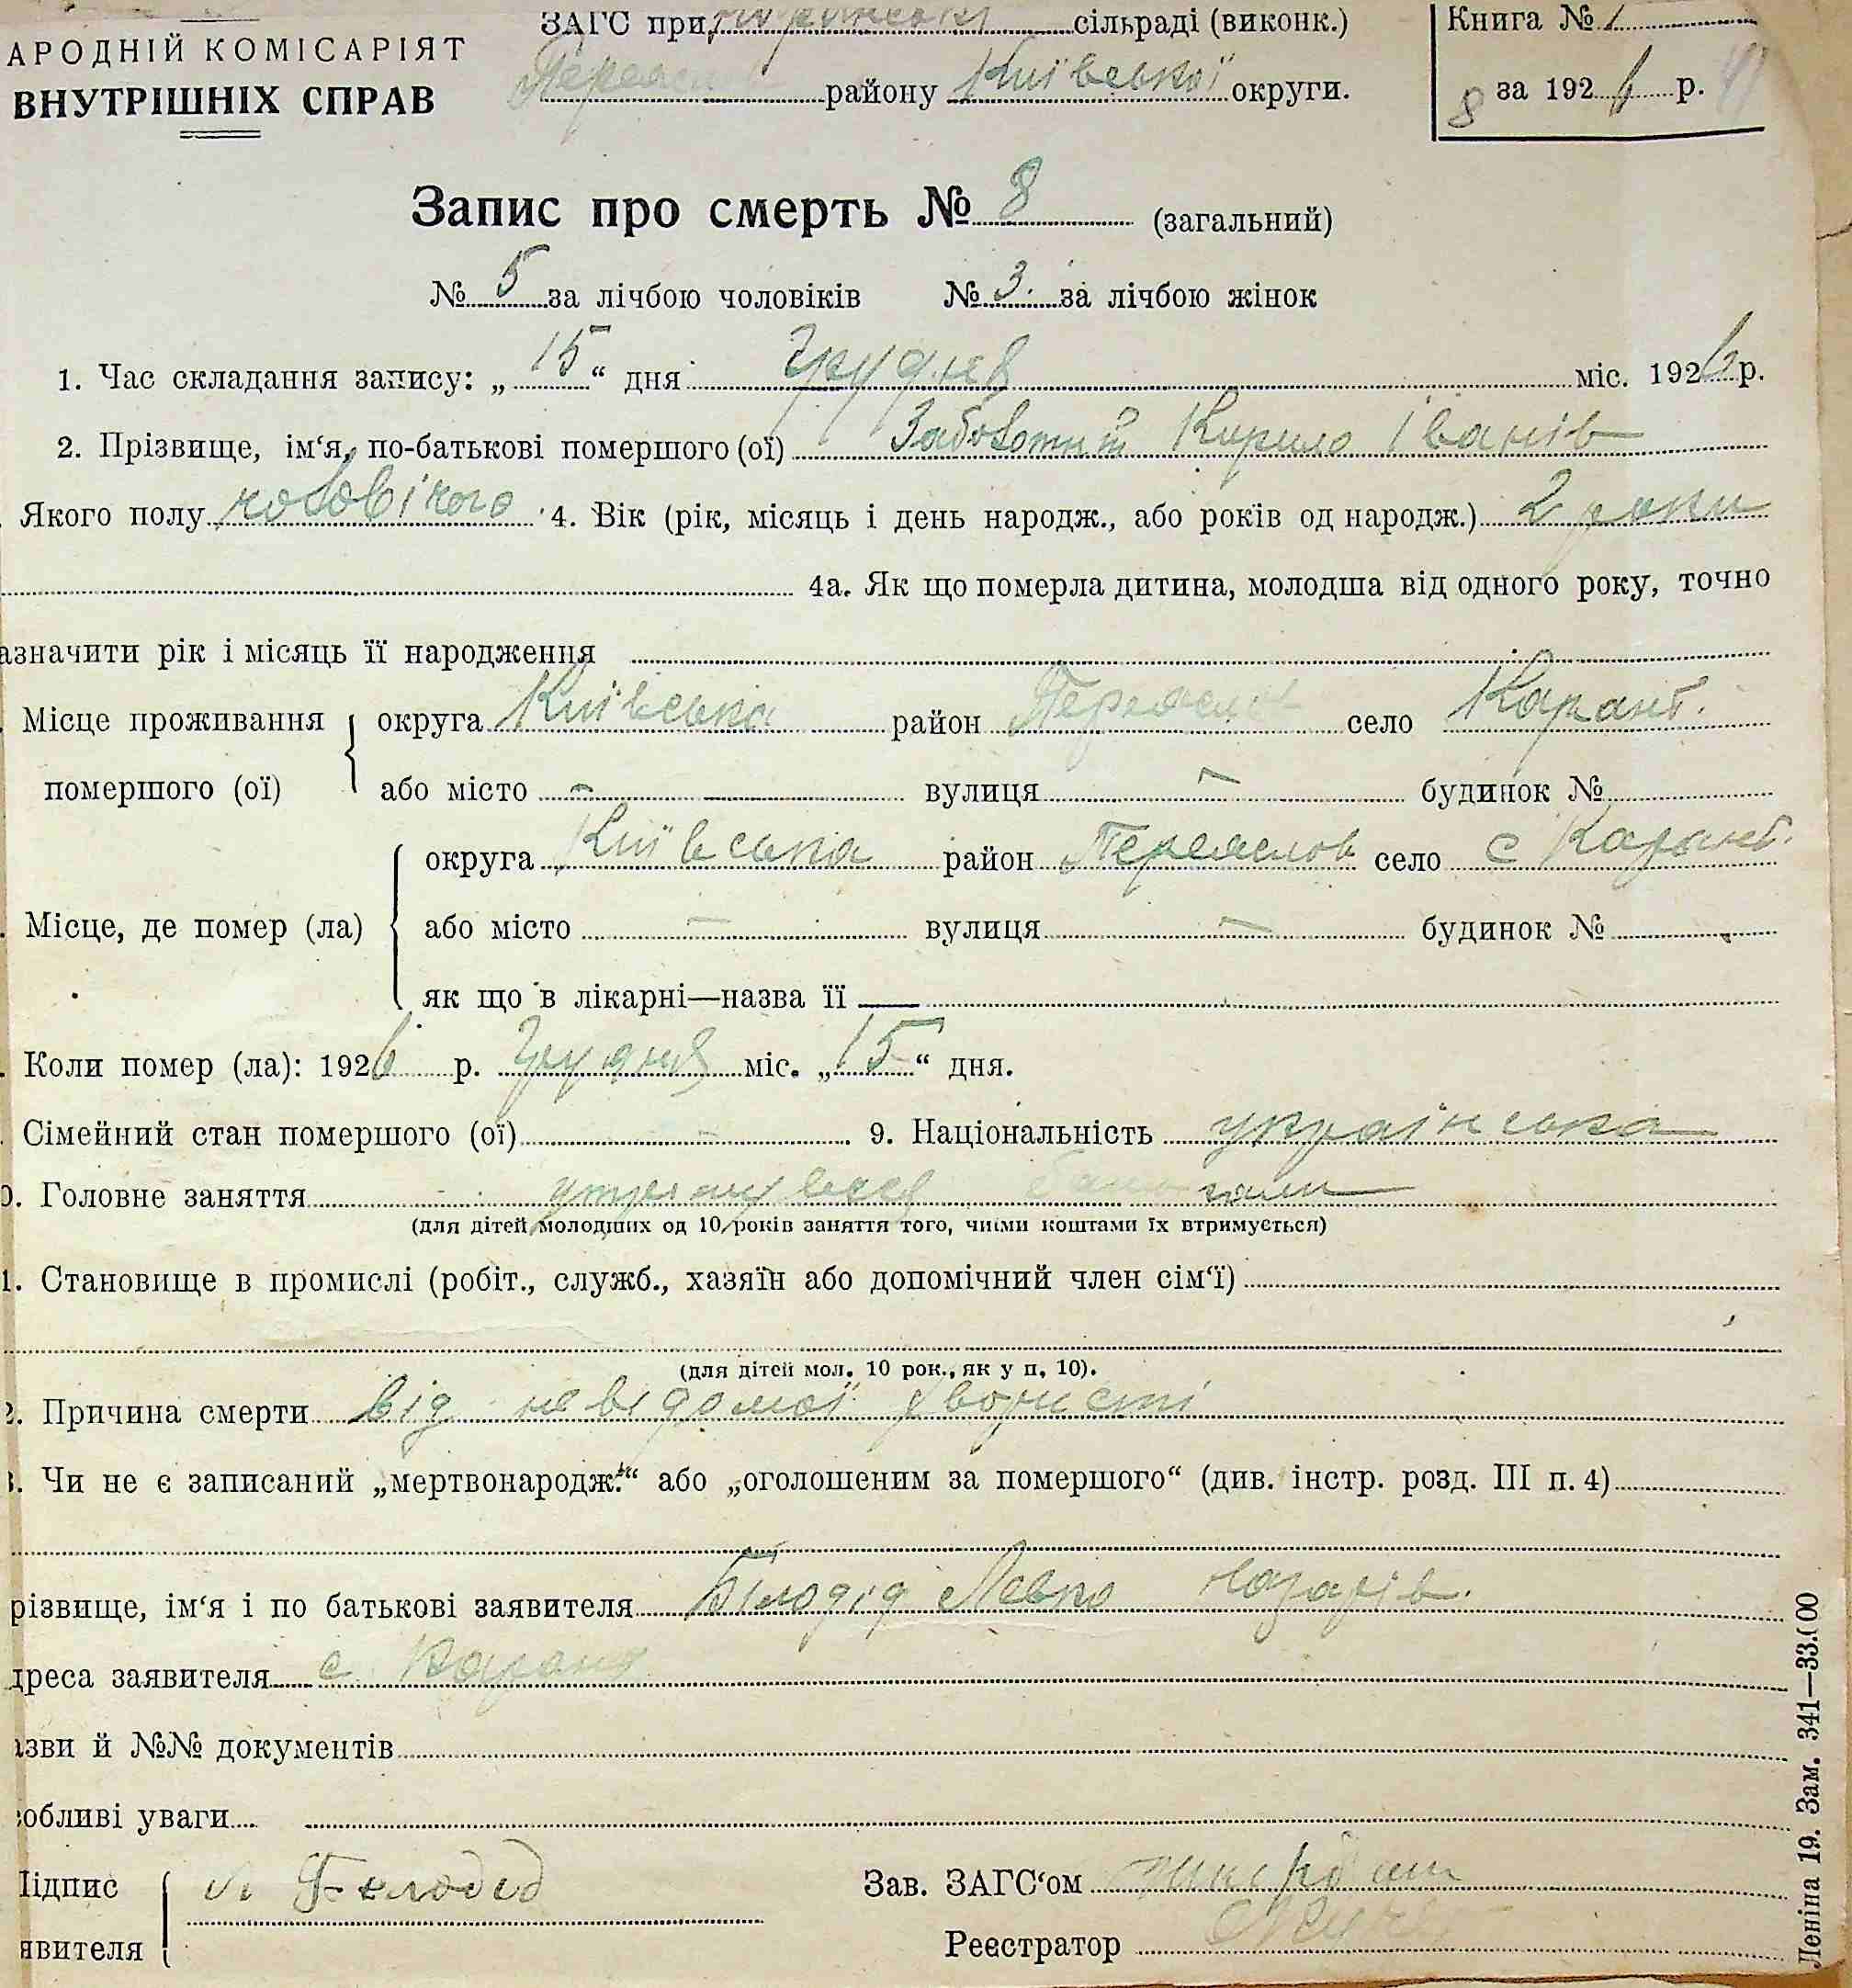 АРОДНІЙ КОМІСАРІЯТ
ВНУТРІШНІХ СПРАВ
ЗАГС при сільраді (виконк.)
району Київської округи.
Книга № 1
8 за 1926 р.
Запис про смерть № 8 (загальний)
№ 5 за лічбою чоловіків № 3. за лічбою жінок
1. Час складання запису: „15“ дня грудня міс. 1926 р.
2. Прізвище, ім‘я, по-батькові помершого (ої) Заболотній Кирило Іванів
Якого полу чоловічого 4. Вік (рік, місяць і день народж., або років од народж.) 2 роки
4а. Як що померла дитина, молодша від одного року, точно
азначити рік і місяць її народження
Місце проживання округа Київська район Переяслов село Карант.
помершого (ої) або місто – вулиця – будинок №
округа Київська район Переяслов село с Карант.
Місце, де помер (ла) або місто – вулиця – будинок №
як що в лікарні—назва її
Коли помер (ла): 1926 р. Грудня міс. „15“ дня.
Сімейний стан помершого (ої) – 9. Національність українська
0. Головне заняття
(для дітей молодших од 10 років заняття того, чиїми коштами їх втримується)
1. Становище в промислі (робіт., служб., хазяїн або допомічний член сім‘ї)
(для дітей мол. 10 рок., як у п. 10).
2. Причина смерти від невідомої
3. Чи не є записаний „мертвонародж.“ або „оголошеним за помершого“ (див. інстр. розд. III п. 4)
різвище, ім‘я і по батькові заявителя Білодід Левко Назарів.
дреса заявителя с.
азви й №№ документів
собливі уваги
Підпис Білодід
явителя
Зав. ЗАГС‘ом
Реєстратор
Леніна 19. Зам. 341—33.000